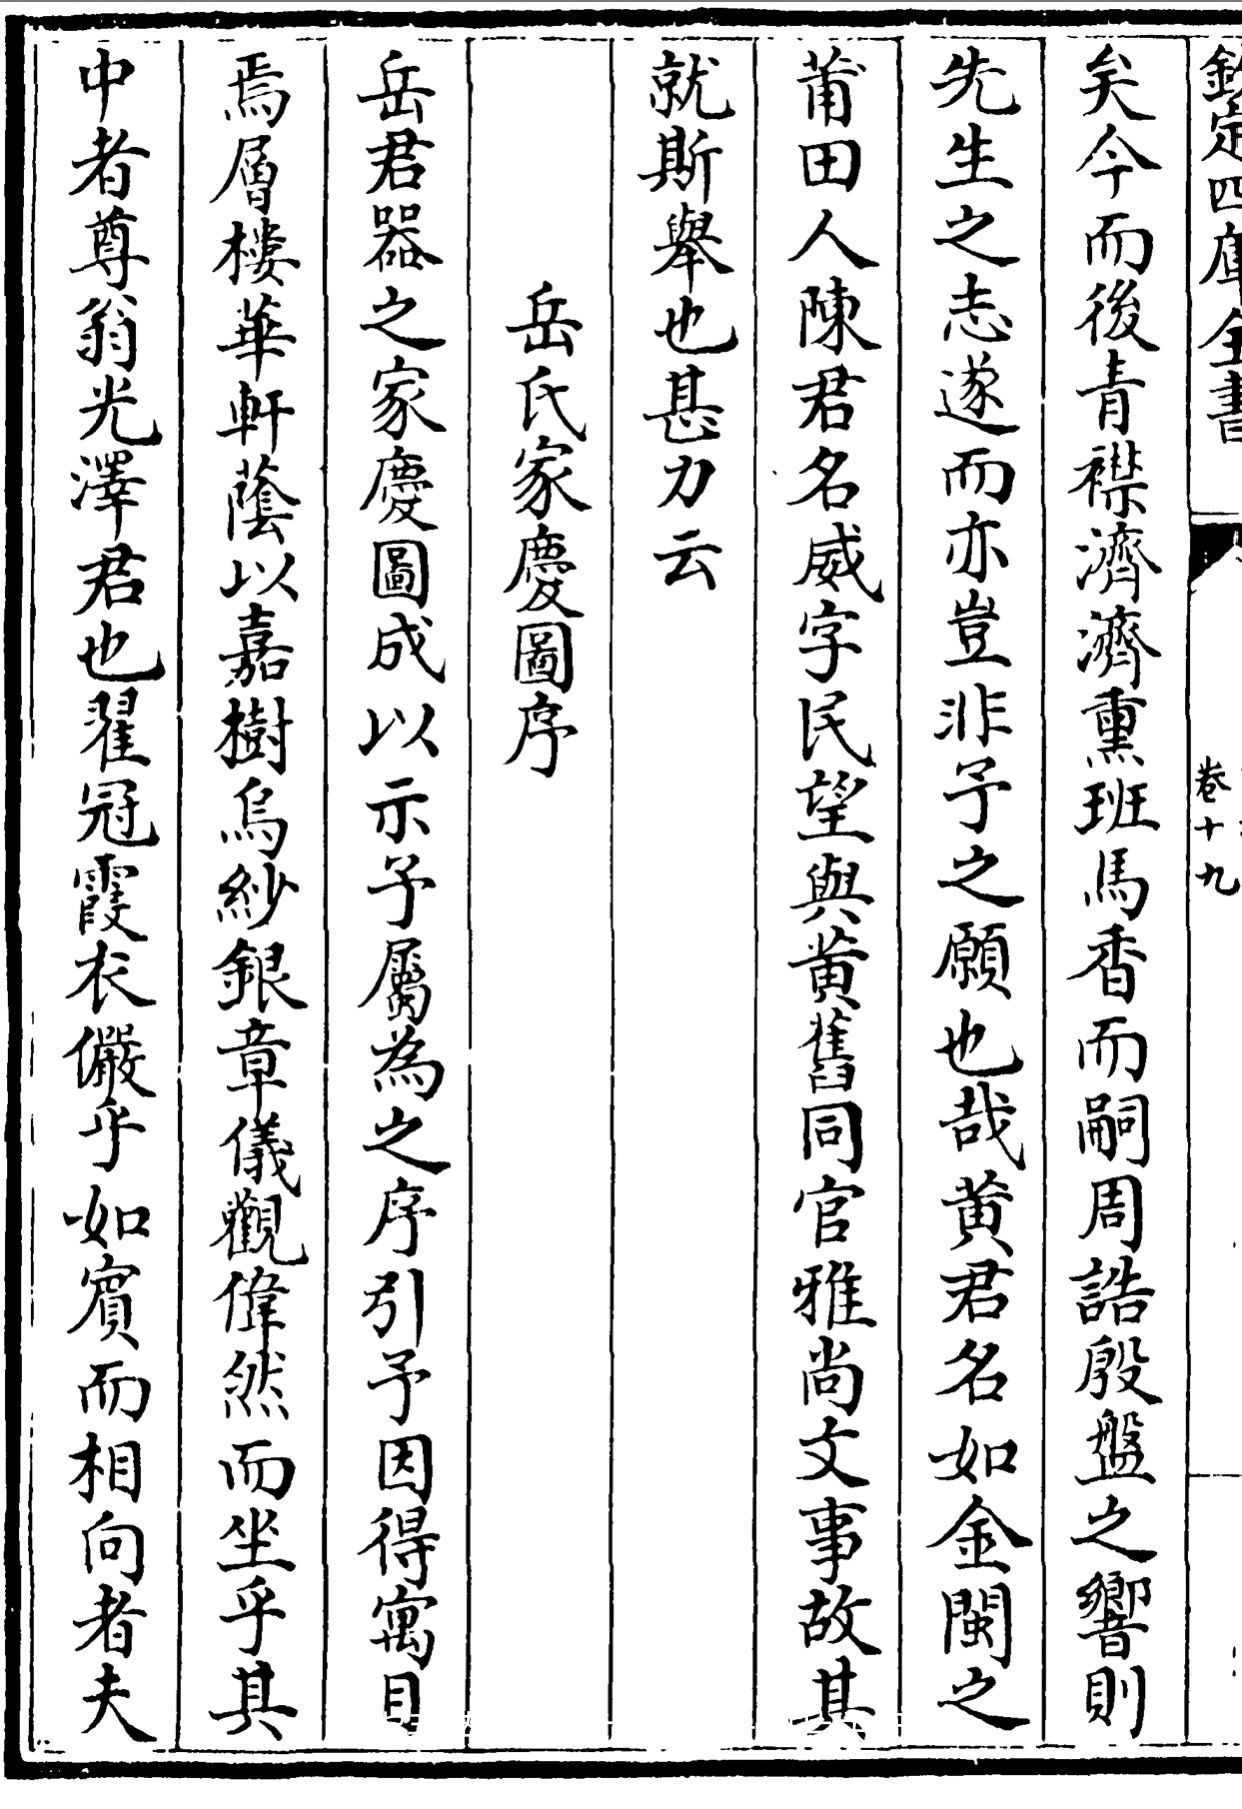 欽定四庫全書
卷十九
矣今而後青襟濟濟熏班馬香而嗣周誥殷盤之響則
先生之志遂而亦豈非予之願也哉黄君名如金閩之
莆田人陳君名威字民望與黄舊同官雅尚文事故其
就斯舉也甚力云
岳氏家慶圖序
岳君器之家慶圖成以示予屬為之序引予因得寓目
焉層樓華軒蔭以嘉樹烏紗銀章儀觀偉然而坐乎其
中者尊翁光澤君也翟冠霞衣儼乎如賓而相向者夫